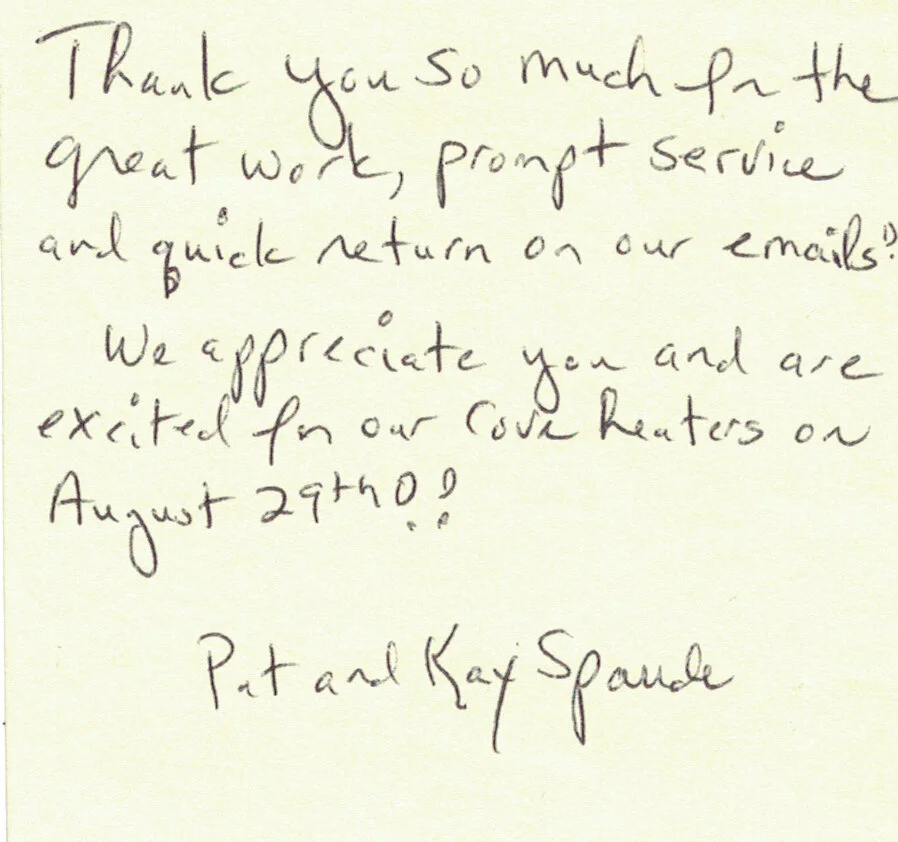 Thank you so much for the
great work, prompt service
and quick return on our emails!
We appreciate you and are
excited for our Cove Heaters on
August 29th!!
Pat and Kay Spaude